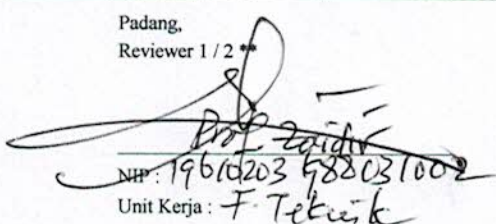 Padang,
Reviewer 1 / 2 **
Prof. Zaidir
NIP : 19610203 198803 1 002
Unit Kerja : F. Teknik